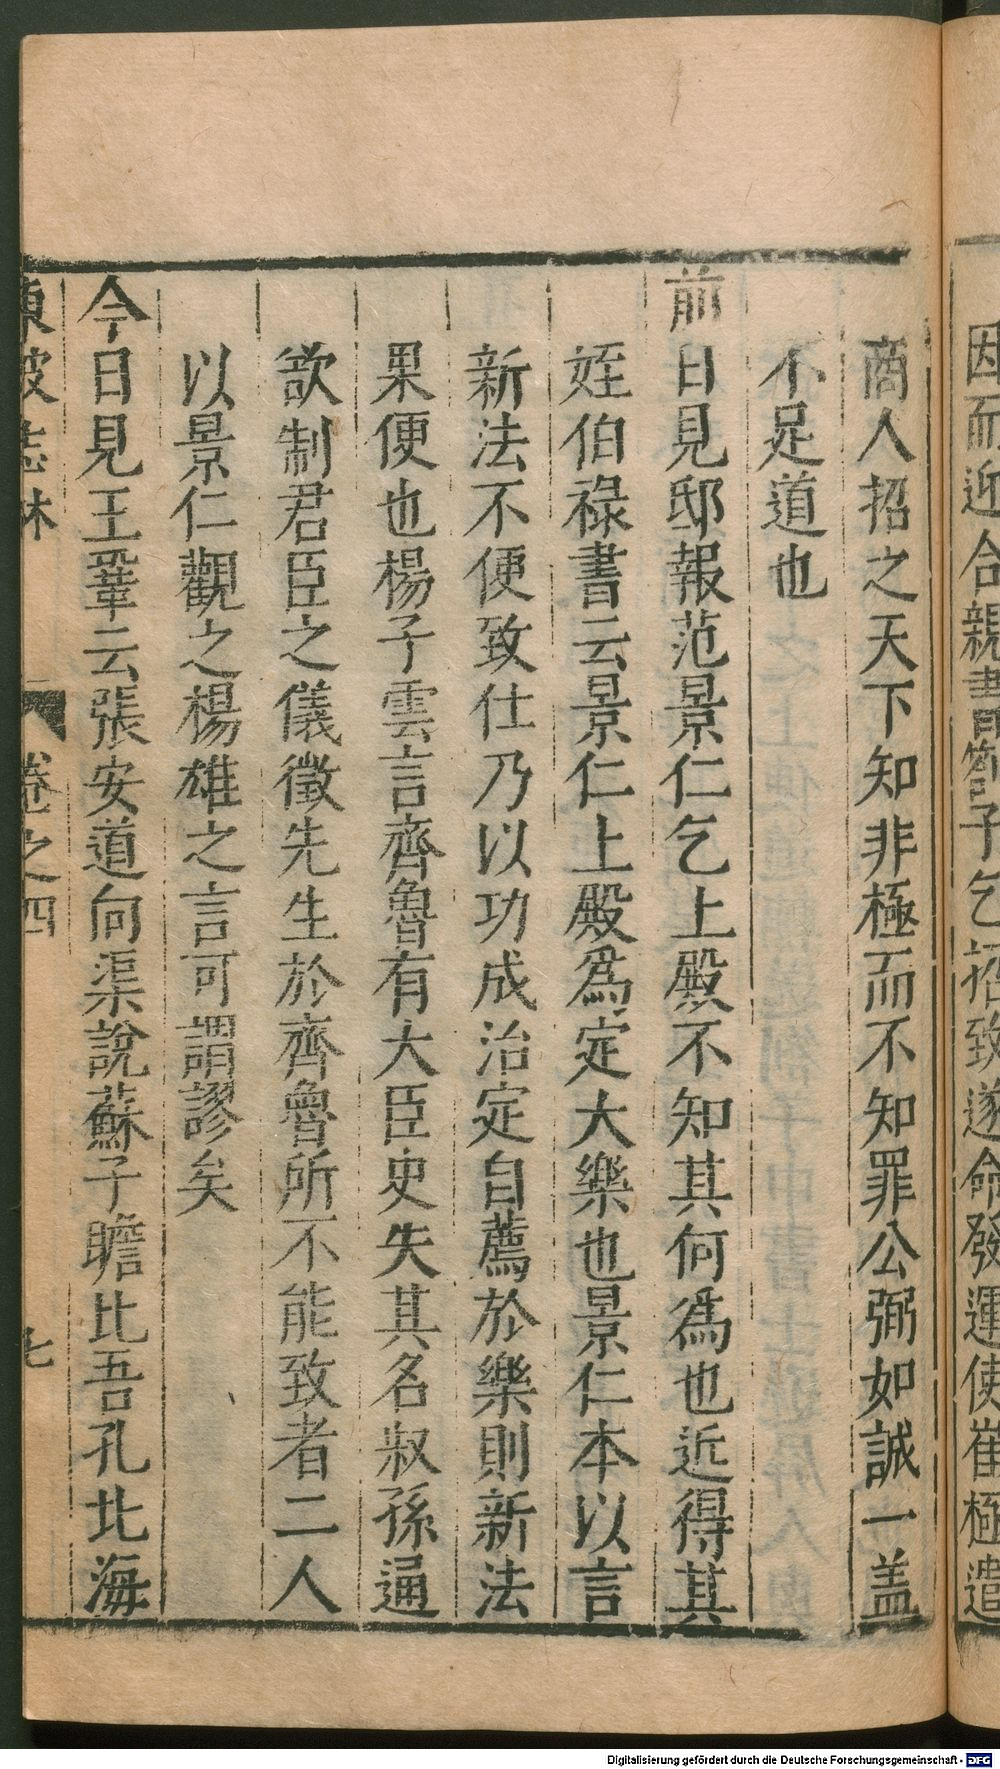 因而近合親書劄子乞招致遂命發運使崔極遣
商人招之天下知非極而不知罪公弼如誠一盖
不足道也
前日見邸報范景仁乞上殿不知其何爲也近得其
姪伯祿書云景仁上殿爲定大樂也景仁本以言
新法不便致仕乃以功成治定自薦於樂則新法
果便也楊子雲言齊魯有大臣史失其名叔孫通
欲制君臣之儀徵先生於齊魯所不能致者二人
以景仁觀之楊雄之言可謂謬矣
今日見王鞏云張安道向渠說蘇子瞻比吾孔北海
東坡志林 卷之四 七
Digitalisierung gefördert durch die Deutsche Forschungsgemeinschaft - DFG